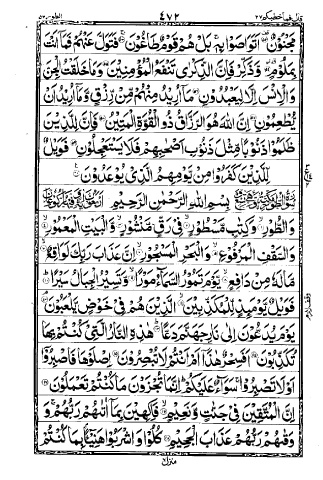 قال فما خطبكم ٢٧ ٤٧٢ الطور ٥٢
مَجْنُونٌ أَتَوَاصَوْا بِهِ بَلْ هُمْ قَوْمٌ طَاغُونَ فَتَوَلَّ عَنْهُمْ فَمَا أَنْتَ
بِمَلُومٍ وَذَكِّرْ فَإِنَّ الذِّكْرَى تَنْفَعُ الْمُؤْمِنِينَ وَمَا خَلَقْتُ الْجِنَّ
وَالْإِنْسَ إِلَّا لِيَعْبُدُونِ مَا أُرِيدُ مِنْهُمْ مِنْ رِزْقٍ وَمَا أُرِيدُ أَنْ
يُطْعِمُونِ إِنَّ اللهَ هُوَ الرَّزَّاقُ ذُو الْقُوَّةِ الْمَتِينُ فَإِنَّ لِلَّذِينَ
ظَلَمُوا ذَنُوبًا مِثْلَ ذَنُوبِ أَصْحَابِهِمْ فَلَا يَسْتَعْجِلُونِ فَوَيْلٌ
لِلَّذِينَ كَفَرُوا مِنْ يَوْمِهِمُ الَّذِي يُوعَدُونَ
بِسْمِ اللهِ الرَّحْمٰنِ الرَّحِيمِ
وَالطُّورِ وَكِتٰبٍ مَسْطُورٍ فِي رَقٍّ مَنْشُورٍ وَالْبَيْتِ الْمَعْمُورِ
وَالسَّقْفِ الْمَرْفُوعِ وَالْبَحْرِ الْمَسْجُورِ إِنَّ عَذَابَ رَبِّكَ لَوَاقِعٌ
مَا لَهُ مِنْ دَافِعٍ يَوْمَ تَمُورُ السَّمَاءُ مَوْرًا وَتَسِيرُ الْجِبَالُ سَيْرًا
فَوَيْلٌ يَوْمَئِذٍ لِلْمُكَذِّبِينَ الَّذِينَ هُمْ فِي خَوْضٍ يَلْعَبُونَ
يَوْمَ يُدَعُّونَ إِلَى نَارِ جَهَنَّمَ دَعًّا هٰذِهِ النَّارُ الَّتِي كُنْتُمْ بِهَا
تُكَذِّبُونَ أَفَسِحْرٌ هٰذَا أَمْ أَنْتُمْ لَا تُبْصِرُونَ اِصْلَوْهَا فَاصْبِرُوا
أَوْ لَا تَصْبِرُوا سَوَاءٌ عَلَيْكُمْ إِنَّمَا تُجْزَوْنَ مَا كُنْتُمْ تَعْمَلُونَ
إِنَّ الْمُتَّقِينَ فِي جَنّٰتٍ وَنَعِيمٍ فٰكِهِينَ بِمَا اٰتٰهُمْ رَبُّهُمْ وَ
وَقٰهُمْ رَبُّهُمْ عَذَابَ الْجَحِيمِ كُلُوا وَاشْرَبُوا هَنِيئًا بِمَا كُنْتُمْ
منزل